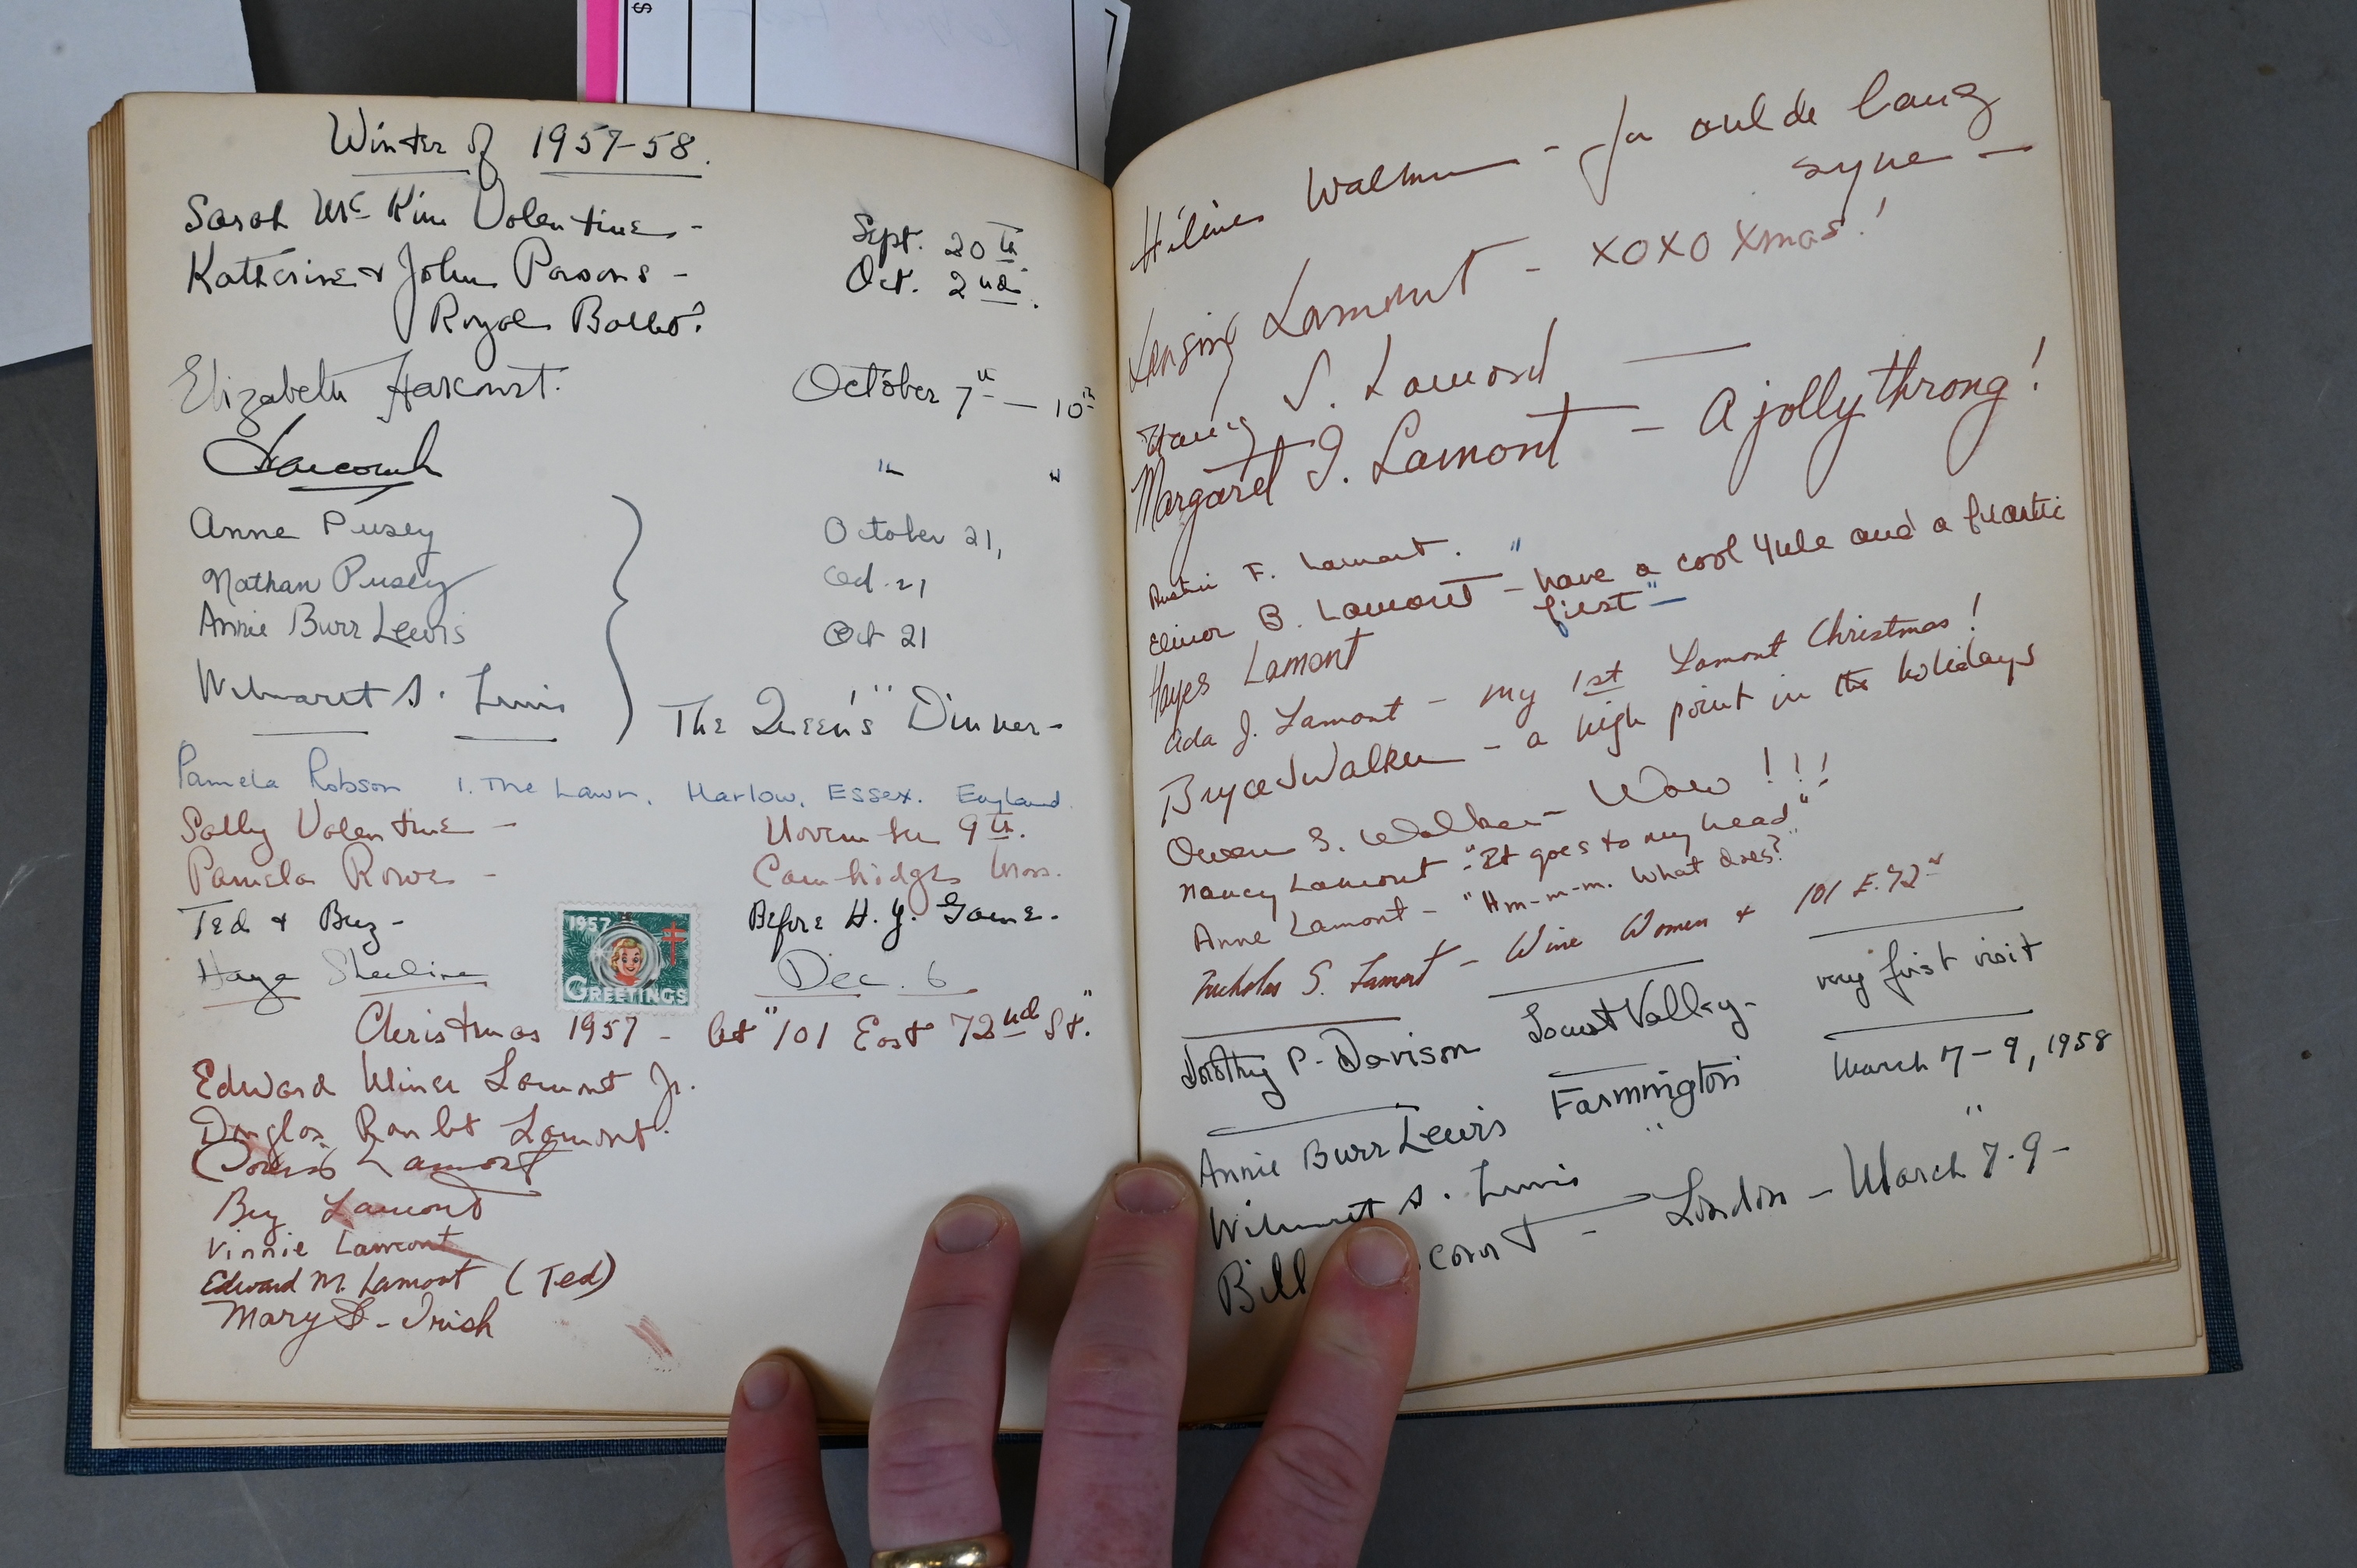 Winter of 1957-58.
Sarah McKim Valentine - Sept. 20th
Katharine & John Parsons - Oct. 2nd.
Royal Balbo?
Elizabeth Harcourt. October 7th — 10th
Harcourt " "
Anne Pusey October 21,
Nathan Pusey Oct. 21
Annie Burr Lewis Oct 21
Wilmarth S. Lewis The "Queen's" Dinner -
Pamela Robson 1. The Lawn, Harlow, Essex. England
Sally Valentine - November 9th.
Pamela Rowe - Cambridge Mass.
Ted & Buz - Before H. Y. Game.
1957
GREETINGS
Dec. 6
Christmas 1957 - At "101 East 72nd St."
Edward Miner Lamont Jr.
Douglas Rambt Lamont.
Lamont
Buz Lamont
Vinnie Lamont
Edward M. Lamont (Ted)
Mary S. Irish
Walker - For auld lang
syne —
Lansing Lamont - XOXO Xmas!
S. Lamont —
Margaret I. Lamont - A jolly throng!
Austin F. Lamont.
Elinor B. Lamont - "have a cool Yule and a frantic
first" —
Hayes Lamont
Ada J. Lamont - my 1st Lamont Christmas!
Bryce Walker - a high point in the holidays
Owen S. Walker - Wow!!!
Nancy Lamont - "It goes to my head"
Anne Lamont - "Hm-m-m. What does?"
Nicholas S. Lamont - Wine Women & 101 E. 72nd
Dorothy P. Davison Locust Valley - very first visit
Annie Burr Lewis Farmington March 7-9, 1958
Wilmarth S. Lewis " "
Bill - London - March 7-9 -